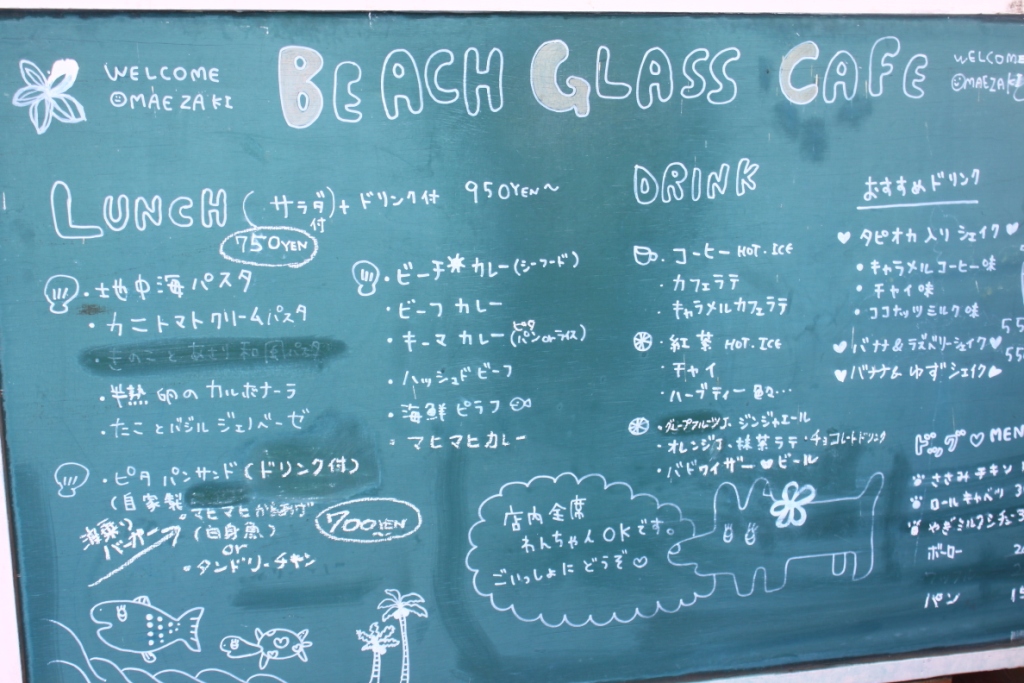 WELCOME
MAEZAKI
BEACH GLASS CAFE
WELCOME
MAEZAKI
LUNCH (サラダ付)+ドリンク付 950YEN~
750YEN
・地中海パスタ
・カニトマトクリームパスタ
・きのことあさり和風パスタ
・半熟卵のカルボナーラ
・たことバジルジェノベーゼ
・ピタパンサンド(ドリンク付)
(自家製
・マヒマヒから揚げ
(白身魚)
or
・タンドリーチキン
700YEN
バーガー
・ビーチ*カレー(シーフード)
・ビーフカレー
・キーマカレー(ピタパンorライス)
・ハッシュドビーフ
・海鮮ピラフ
・マヒマヒカレー
DRINK
・コーヒー HOT・ICE
・カフェラテ
・キャラメルカフェラテ
・紅茶 HOT.ICE
・チャイ
・ハーブティー色々…
・グレープフルーツJ・ジンジャエール
・オレンジJ・抹茶ラテ・チョコレートドリンク
・バドワイザー♥ビール
おすすめドリンク
♥タピオカ入りシェイク♥
・キャラメルコーヒー味
・チャイ味
・ココナッツミルク味
55
♥バナナ&ラズベリーシェイク♥
55
♥バナナ&ゆずシェイク♥
ドッグ♡MEN
ささみチキン
ロールキャベツ 3
やぎミルクシチュー 3
ボーロー 2
パン 15
店内全席
わんちゃんOKです。
ごいっしょにどうぞ♡